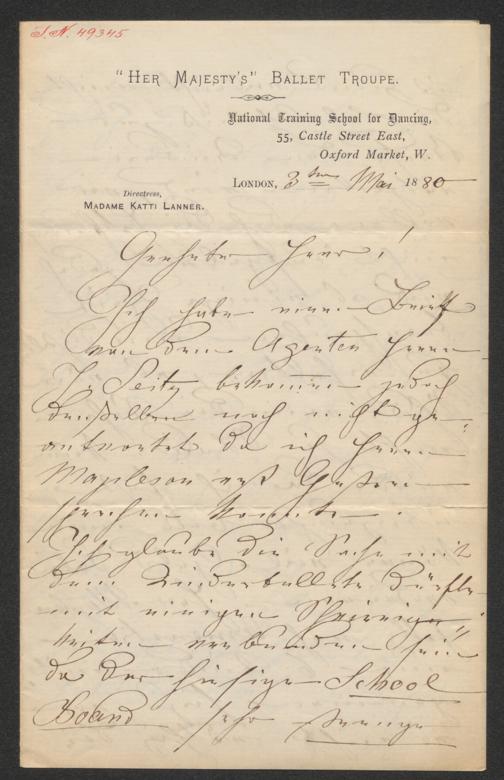 I. N. 49345
"HER MAJESTY'S" BALLET TROUPE.
National Training School for Dancing,
55, Castle Street East,
Oxford Market, W.
LONDON, 3ten Mai 1880
Directress,
MADAME KATTI LANNER.
Geehrter Herr!
Ich habe einen Brief
von dem Agenten Herrn
Seitz bekommen jedoch
denselben noch nicht ge-
antwortet da ich Herrn
Mapleson erst Gestern
sprechen konnte.
Ich glaube die Sache mit
dem Kinderballete dürfte
mit einigen Schwierig-
keiten verbunden sein
da der hiesige School
Board sehr strenge